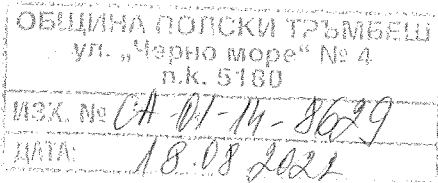 ОБЩИНА ПОЛСКИ ТРЪМБЕШ
ул. „Черно море“ № 4
п.к. 5180
ИЗХ. № СА-01-14-8629
ДАТА: 18.08.2022